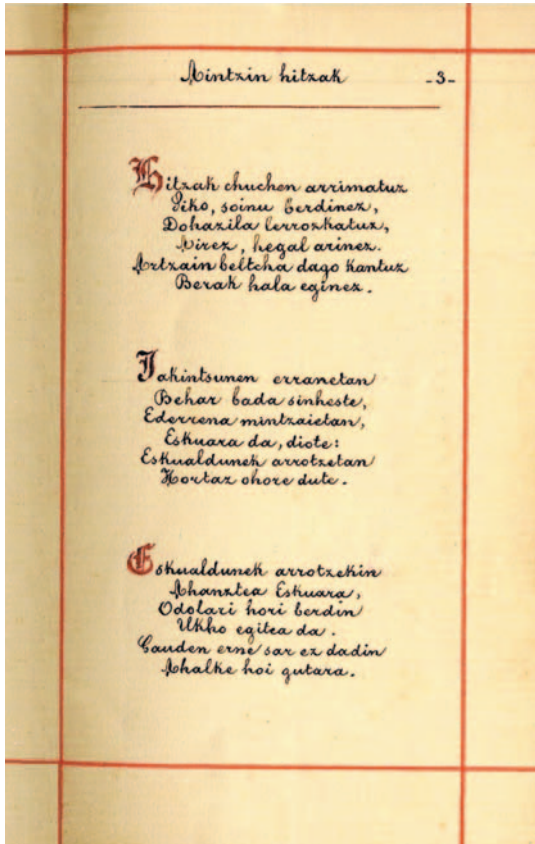 Aintzin hitzak -3-
Hitzak chuchen arrimatuz
Piko, soinu berdinez,
Dohazila lerrozkatuz,
Airez, hegal arinez.
Artzain beltcha dago kantuz
Berak hala eginez.
Jakintsunen erranetan
Behar bada sinheste,
Ederrena mintzaietan,
Eskuara da, diote:
Eskualdunek arrotzetan
Hortaz ohore dute.
Eskualdunek arrotzekin
Ahanztea Eskuara,
Odolari hori berdin
Ukho egitea da.
Gauden erne sar ez dadin
Ahalke hoi gutara.